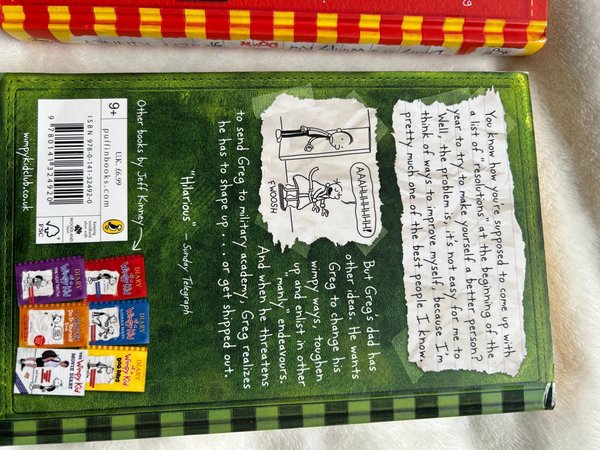 You know how you're supposed to come up with
a list of "resolutions" at the beginning of the
year to try to make yourself a better person?
Well, the problem is, it's not easy for me to
think of ways to improve myself, because I'm
pretty much one of the best people I know.
AAAHHHHHH!
FWOOSH
But Greg's dad has
other ideas. He wants
Greg to change his
wimpy ways, toughen
up and enlist in other
"manly" endeavours.
And when he threatens
to send Greg to military academy, Greg realizes
he has to shape up . . . or get shipped out.
"Hilarious" – Sunday Telegraph
Other books by Jeff Kinney
9+
U.K. £6.99
puffinbooks.com
ISBN 978-0-141-32492-0
9 780141 324920
FSC
wimpykidclub.co.uk
DIARY
of a
Wimpy Kid
DIARY
of a
Wimpy Kid
DOG DAYS
DIARY
of a
Wimpy Kid
THE UGLY TRUTH
DO-IT-YOURSELF
Wimpy Kid
MOVIE DIARY